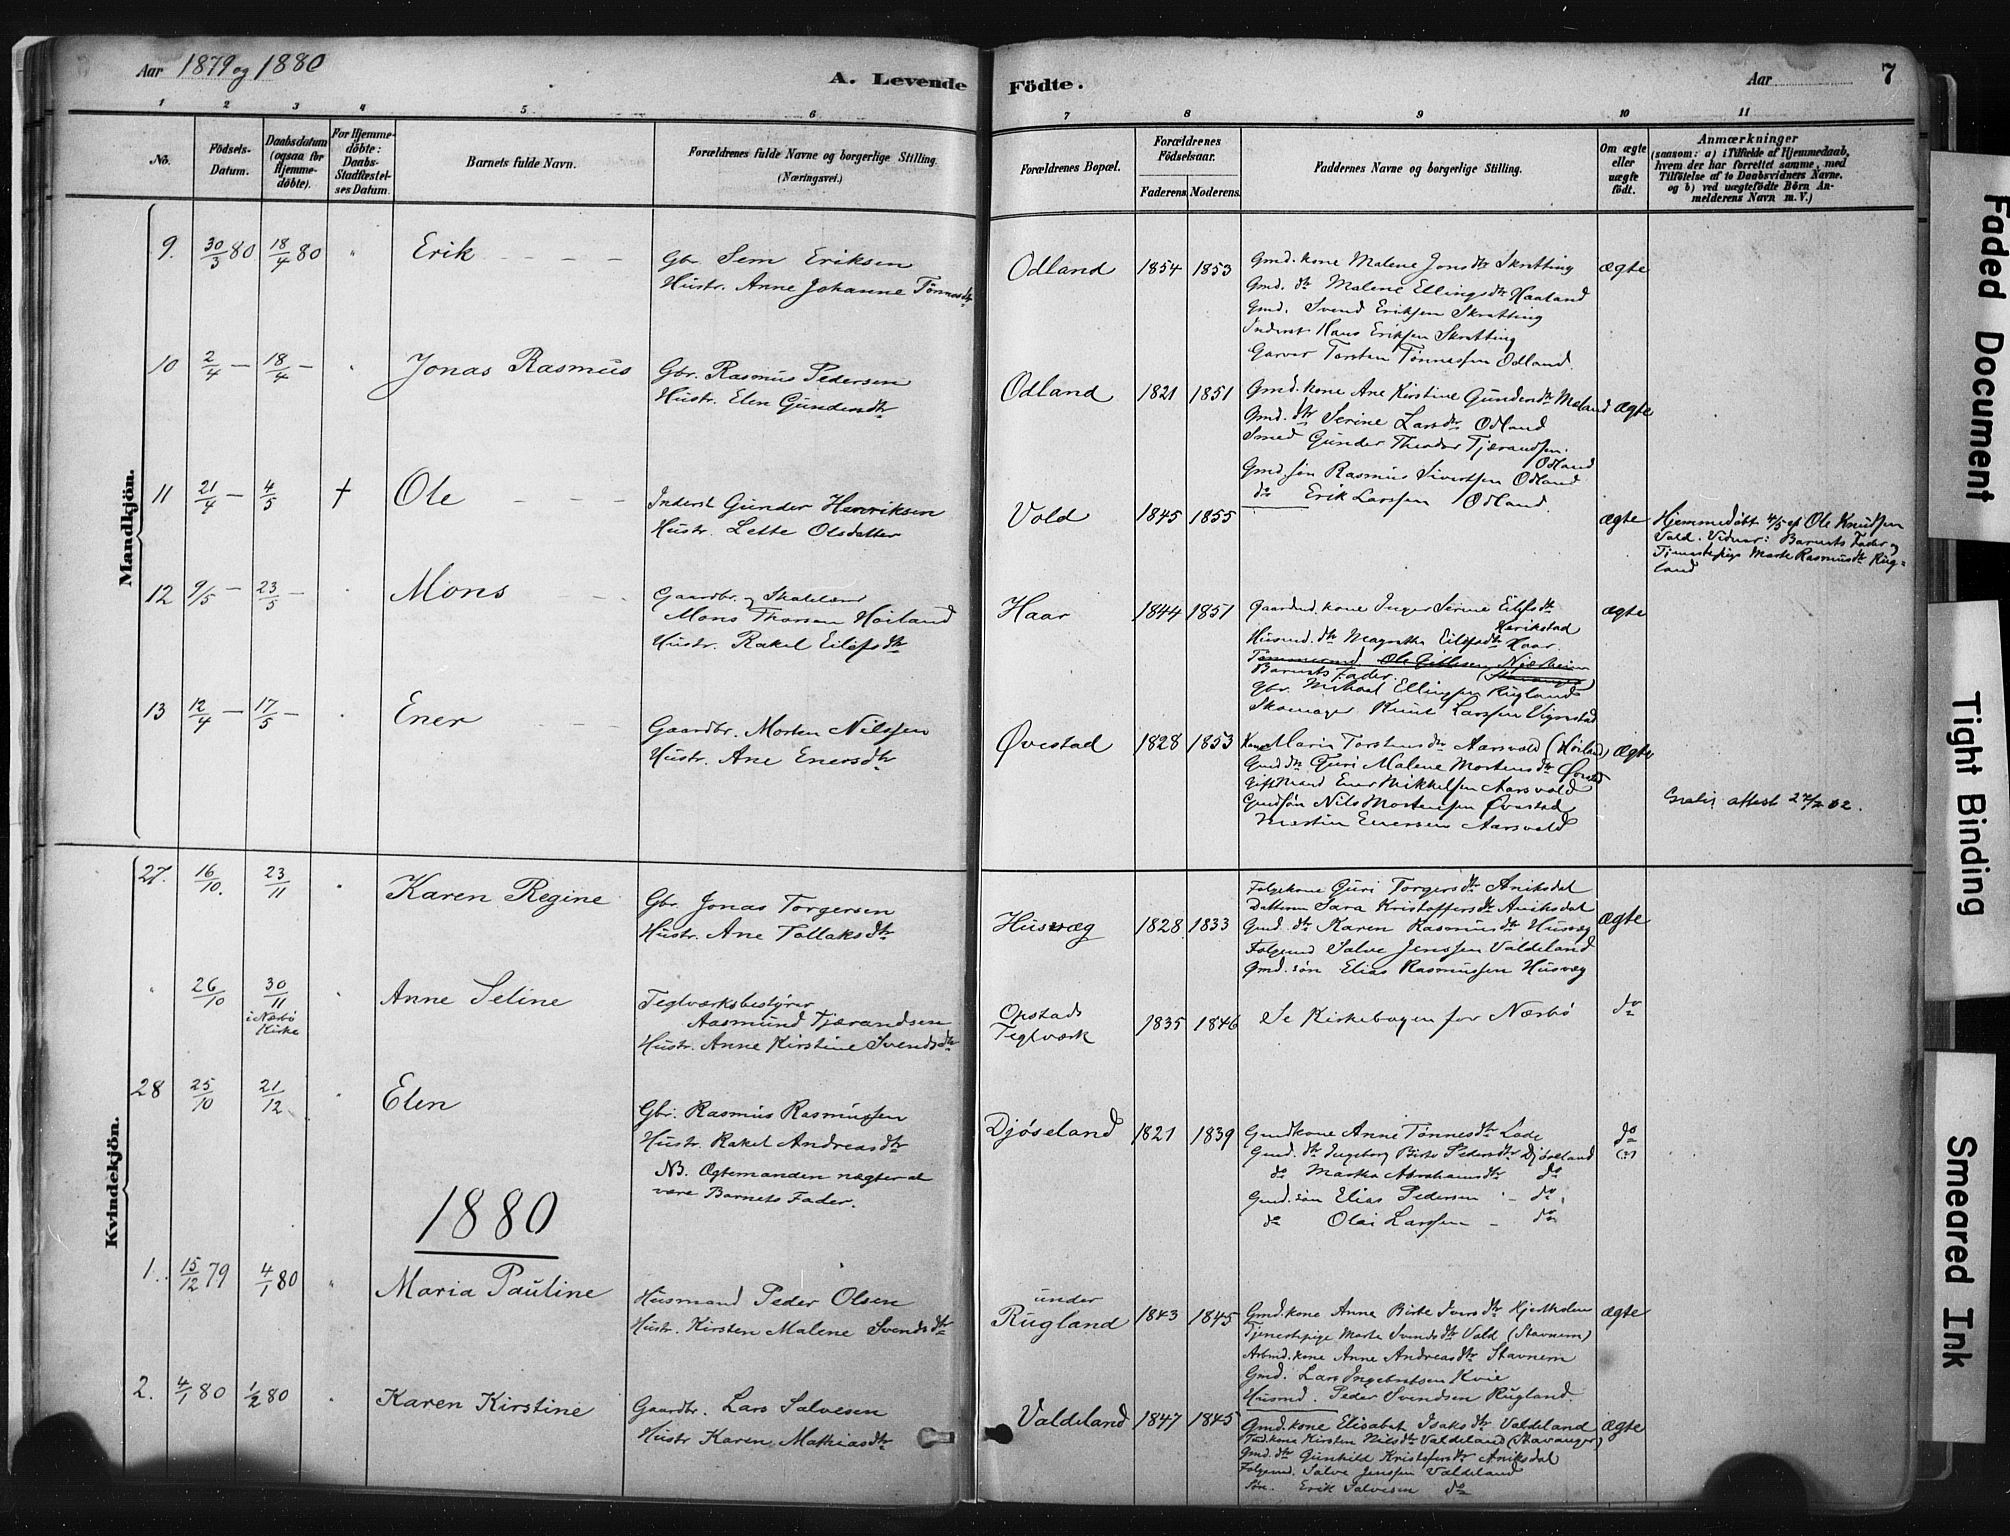 Aar 1879 og 1880
A. Levende Födte.
Aar
7
1 2 3 4 5 6 7 8 9 10 11
No.
Födsels-Datum.
Daabsdatum (ogsaa for Hjemme-döbte).
For Hjemme-döbte: Daabs-Stadfæstel-ses Datum.
Barnets fulde Navn.
Forældrenes fulde Navne og borgerlige Stilling. (Næringsvei.)
Forældrenes Bopæl.
Forældrenes Födselsaar.
Faderens. Moderens.
Faddernes Navne og borgerlige Stilling.
Om ægte eller uægte födt.
Anmærkninger
(saasom: a) i Tilfælde af Hjemmedaab,
hvem der har forrettet samme, med
Tilföielse af to Daabsvidners Navne,
og b) ved uægtefödte Börn An-
melderens Navn m. V.)
Mandkjön.
9. 30/3 80 18/4 80 " Erik
Gbr. Sem Eriksen
Hustr. Anne Johanne Tønnesdtr
Odland 1854 1853
Gmd. kone Malene Jonsdtr Skretting
Gmd. dtr Malene Ellingsdtr Haaland
Gmd. Svend Eriksen Skretting
Inderst Hans Eriksen Skretting
Garver Torsten Tønnessen Odland.
ægte
10 2/4 — 18/4 — " Jonas Rasmus
Gbr. Rasmus Pedersen
Hustr. Elen Gundersdtr
Odland 1821 1851
Gmd. kone Ane Kirstine Gundersdtr Mæland
Gmd. dtr Serine Larsdtr Odland
Smed Gunder Theodor Tjærandsen.
Odland
Gmd. søn Rasmus Sivertsen Odland
do Erik Larssen Odland.
ægte
11 21/4 — 4/5 † Ole
Inderst Gunder Henriksen
Hustr. Lette Olsdatter
Vold 1845 1855
ægte
Hjemmedøbt 4/5 af Ole Knudsen
Vold. Vidner: Barnets Fader og
Tjenestepige Marte Rasmusdtr Rug-
land
12 9/5 — 23/5 — " Mons
Gaardbr. og Skolelærer
Mons Thorsen Høiland
Hustr. Rakel Eilefsdtr
Haar 1844 1851
Gaardmd. kone Inger Serine Eilefsdtr
Herikstad
Husmd. dtr Magretha Eilefsdtr Haar
Tømmermd. Ole Gitlesen Njærheim
Barnets Fader. (Stavanger)
Gbr. Mikael Ellingsen Rugland
Skomager Knut Larssen Vigrestad
ægte
13 12/4 — 17/5 — " Ener
Gaardbr. Morten Nilssen
Hustr. Ane Enersdtr
Øvestad 1828 1853
Kone Maria Torstensdtr Aarsvold (Høiland)
Gmd dtr Guri Malene Mortensdtr Øvestad
Gift Mand Ener Mikkelsen Aarsvold
Gmdsøn Nils Mortensen Øvestad
Martin Enersen Aarsvold
ægte
Gratis attest 27/2 02.
Kvindekjön.
27. 16/10. 23/11 " Karen Regine
Gbr. Jonas Torgersen
Hustr. Ane Tollaksdtr
Husvæg 1828 1833
Folgekone Guri Torgersdtr Aniksdal
Datteren Sara Kristoffersdtr Aniksdal
Gmd. dtr Karen Rasmusdtr Husvæg
Folgemd Salve Jenssen Valdeland
Gmd. søn Elias Rasmussen Husvæg
ægte
" 26/10 30/11 i Nærbø Kirke " Anne Seline
Teglværksbestyrer
Aasmund Tjærandsen
Hustr. Anne Kirstine Svendsdtr
Opstads Teglværk 1835 1846
Se Kirkebogen for Nærbø
do
28 25/10 21/12 " Elen
Gbr. Rasmus Rasmussen
Hustr. Rakel Andreasdtr
NB. Ægtemanden nægter at
være Barnets Fader.
Djøseland 1821 1839
Gmdkone Anne Tønnesdtr Lode
Gmd. dtr Ingeborg Birte Pedersdtr Djøseland
do Martha Abrahamsdtr do
Gmd. søn Elias Pedersen - do
do Olai Larssen - do
do
(?)
1880
1. 15/12 79 4/1 80 " Maria Pauline
Husmand Peder Olsen
Hustr. Kirsten Malene Svendsdtr
under Rugland 1843 1845
Gmd. kone Anne Birte Iversdtr Kjetholen
Tjenestepige Marta Svendsdtr Vold (Stavnem)
Arbmd. kone Anne Andreasdtr Stavnem
Gmd. Lars Ingebretsen Kvie
Husmd. Peder Svendsen Rugland.
ægte
2. 4/1 80 1/2 80 " Karen Kirstine
Gaardbr. Lars Salvesen
Hustr Karen Mathiasdtr
Valdeland 1847 1845
Gmd. kone Elisabet Isaksdtr Valdeland
kone Kirsten Nilsdtr Valdeland (Stavanger)
Gmd. dtr Gunhild Kristofersdtr Aniksdal
Folgemd. Salve Jenssen Valdeland
Søn. Erik Salvesen do
ægte
Faded Document
Tight Binding
Smeared Ink